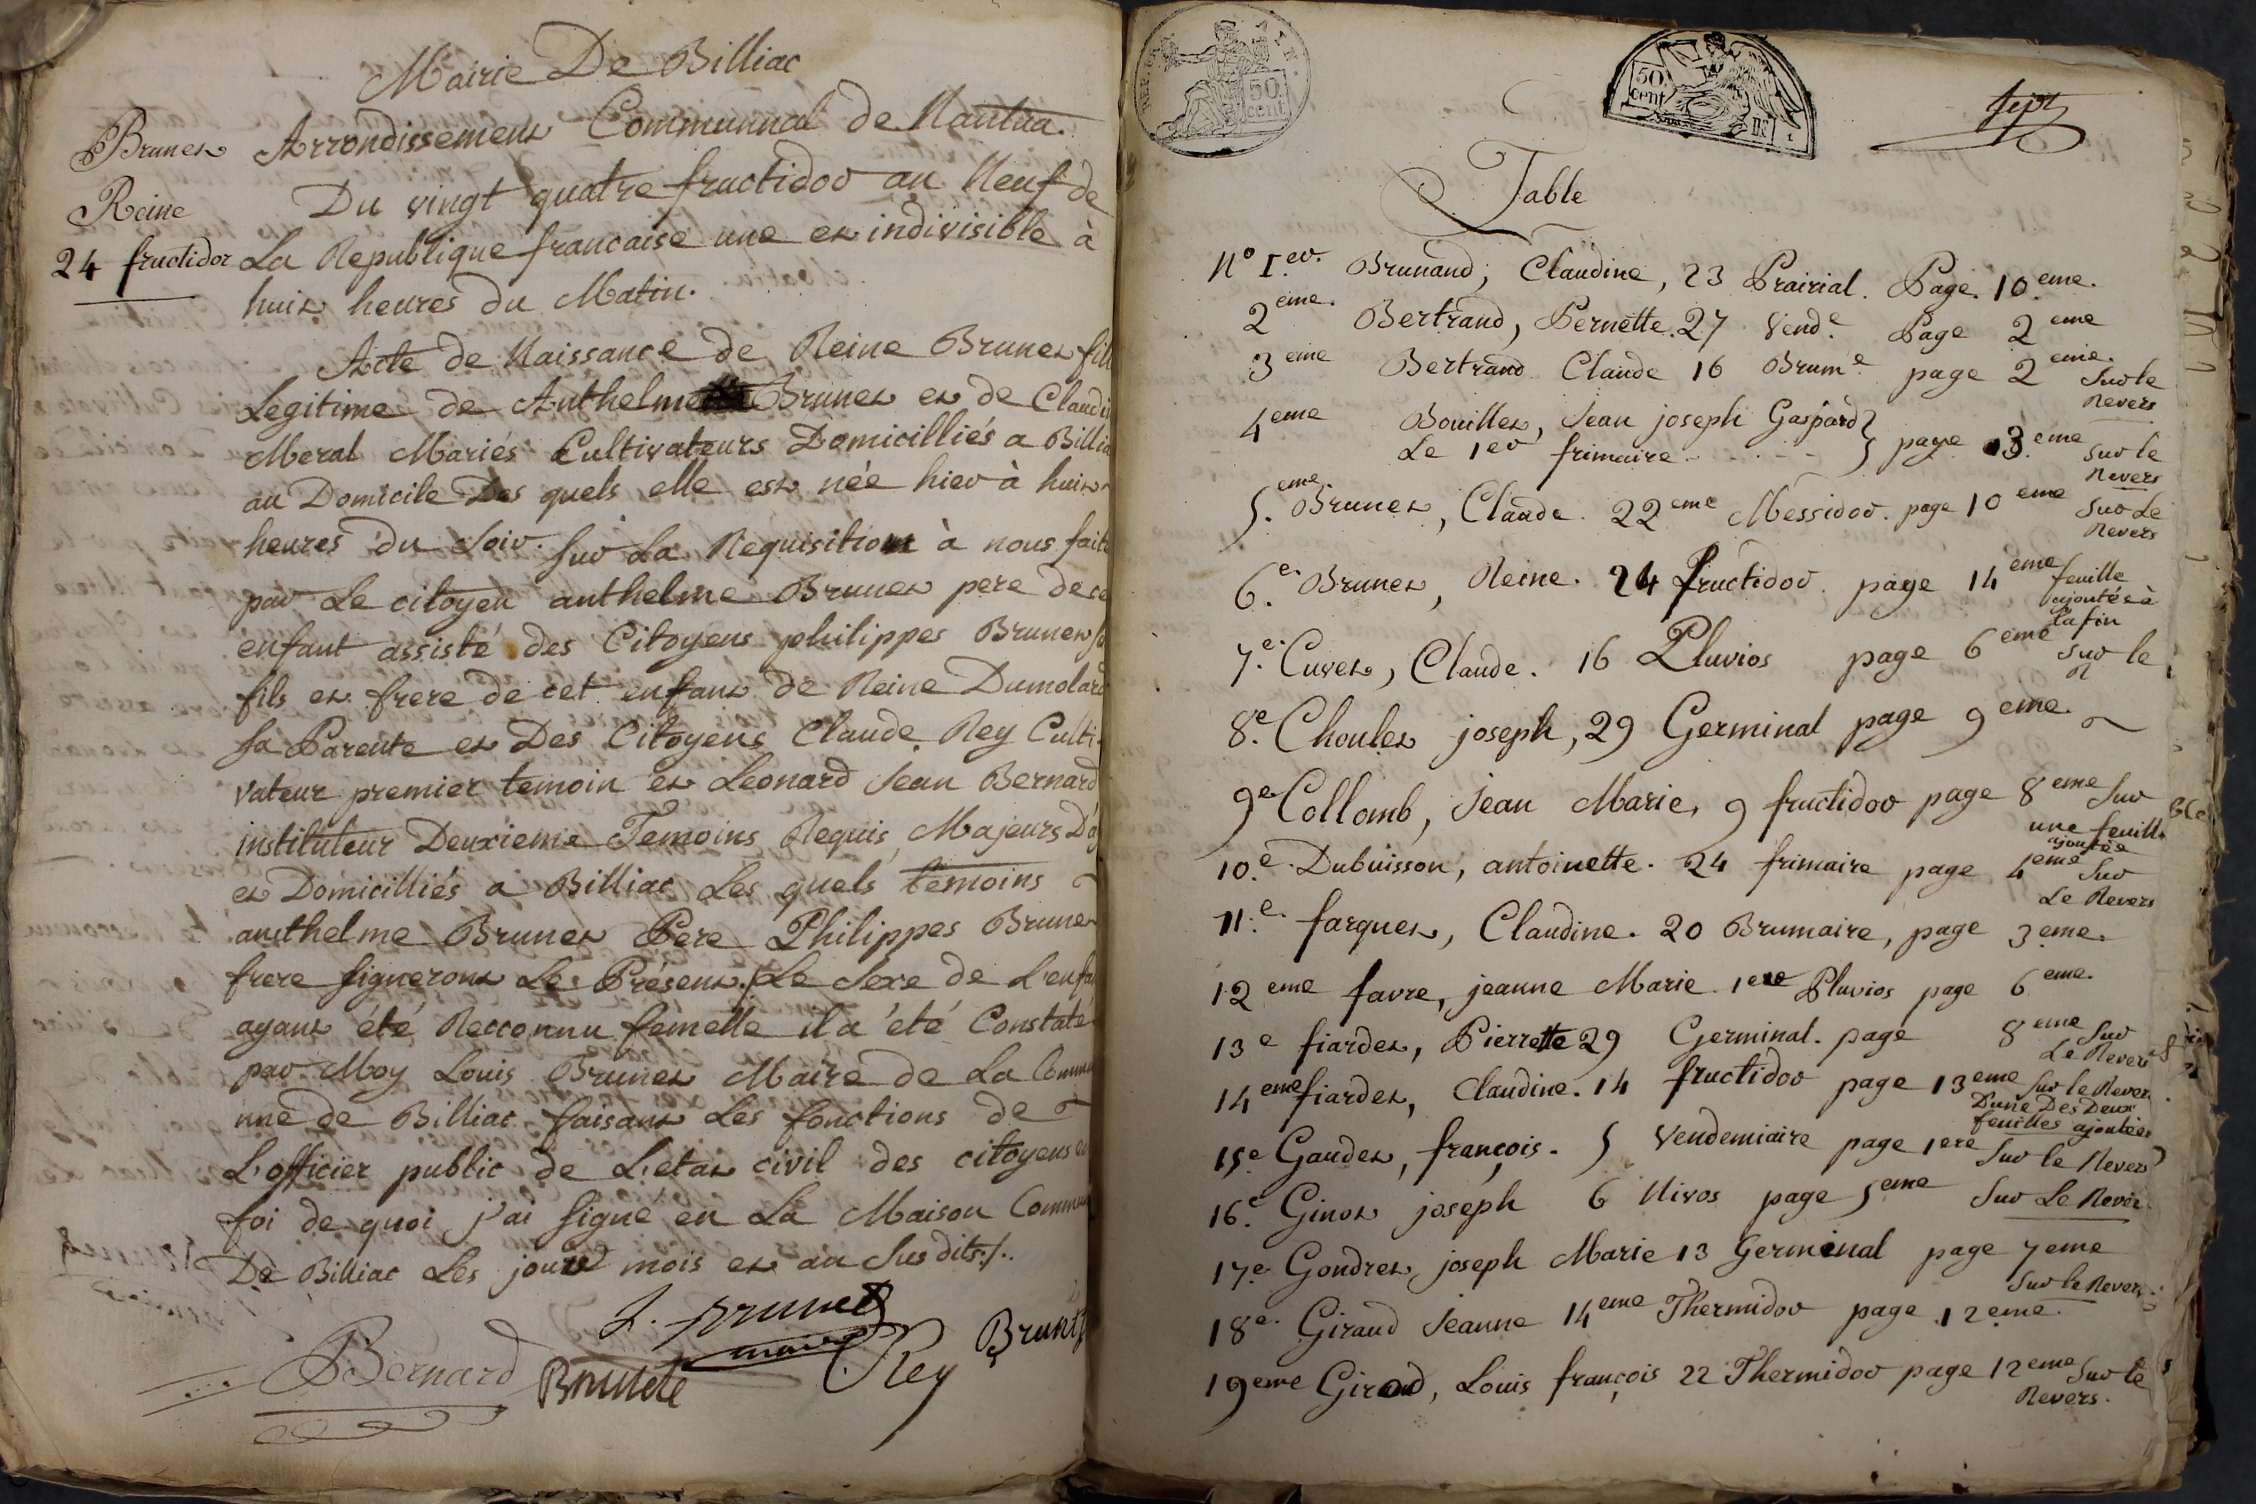 Mairie De Billiac
Arrondissement Communnal de Nantua.
Brunet
Reine
24 fructidor
Du vingt quatre fructidor an Neuf de
La Republique francaise une et indivisible à
huit heures du Matin.
Acte de Naissance de Reine Brunet
Legitime de Anthelme Brunet et de
Meral Mariés Cultivateurs Domicilliés a
au Domicile Des quels elle est née hier à huit
heures du Soir. Sur La Requisition à nous
par Le citoyen anthelme Brunet pere de
enfant assisté des Citoyens philippes Brunet
fils et frere de cet enfant de Reine
Sa Parente et Des Citoyens Claude Rey Culti-
vateur premier temoin et Leonard Jean Bernard
instituteur Deuxieme Temoins Requis Majeurs
et Domicilliés a Billiac Les quels temoins
anthelme Brunet Pere Philippes Brunet
frere signeront Le Présent./. Le Sexe de
ayant été Recconnu femelle il a été Constaté
par Moy Louis Brunet Maire de La
nne de Billiac faisant Les fonctions de
L'officier public de L'etat civil des citoyens
foi de quoi j'ai signe en La Maison
De Billiac Les jours mois et an Susdits./.
L. Brunet
maire
Bernard Brunete Rey Brunet
50
cent
50
cent
sept
Table
N° 1.er Brunand, Claudine, 23 Prairial. Page. 10.eme.
2eme. Bertrand, Pernette. 27 Vend.e Page 2eme
3eme Bertrand Claude 16 Brum.e page 2eme. Sur le
Revers
4eme Bouillet, Jean joseph Gaspard
Le 1er frimaire - - - - } page 3.eme Sur le
Revers
5.eme. Brunet, Claude. 22eme Messidor. page 10eme Sur Le
Revers
6.e. Brunet, Reine. 24 fructidor. page 14eme feuille
ajoutée à
La fin
7.e. Cuvet, Claude. 16 Pluvios page 6eme Sur le
R
8.e Choulet joseph, 29 Germinal page 9eme.
9e Collomb, Jean Marie, 9 fructidor page 8eme Sur
une feuille
ajoutée
10.e. Dubuisson, antoinette. 24 frimaire page 4eme Sur
Le Revers
11.e. farquet, Claudine. 20 Brumaire, page 3eme.
12eme favre, jeanne Marie. 1ere Pluvios page 6eme.
13e fiardet, Pierrette 29 Germinal. page 8eme Sur
Le Revers
14eme fiardet, Claudine. 14 fructidor page 13eme Sur le Revers
D'une Des Deux
feuilles ajoutées
15e Gaudet, françois. 5 Vendemiaire page 1ere Sur le Revers
16.e Ginot joseph 6 Nivos page 5eme Sur Le Revers
17.e Gondret joseph Marie 13 Germinal page 7eme
Sur le Revers
18.e. Giraud Jeanne 14eme Thermidor page 12eme.
19eme Giroud, Louis françois 22 Thermidor page 12eme Sur le
Revers.